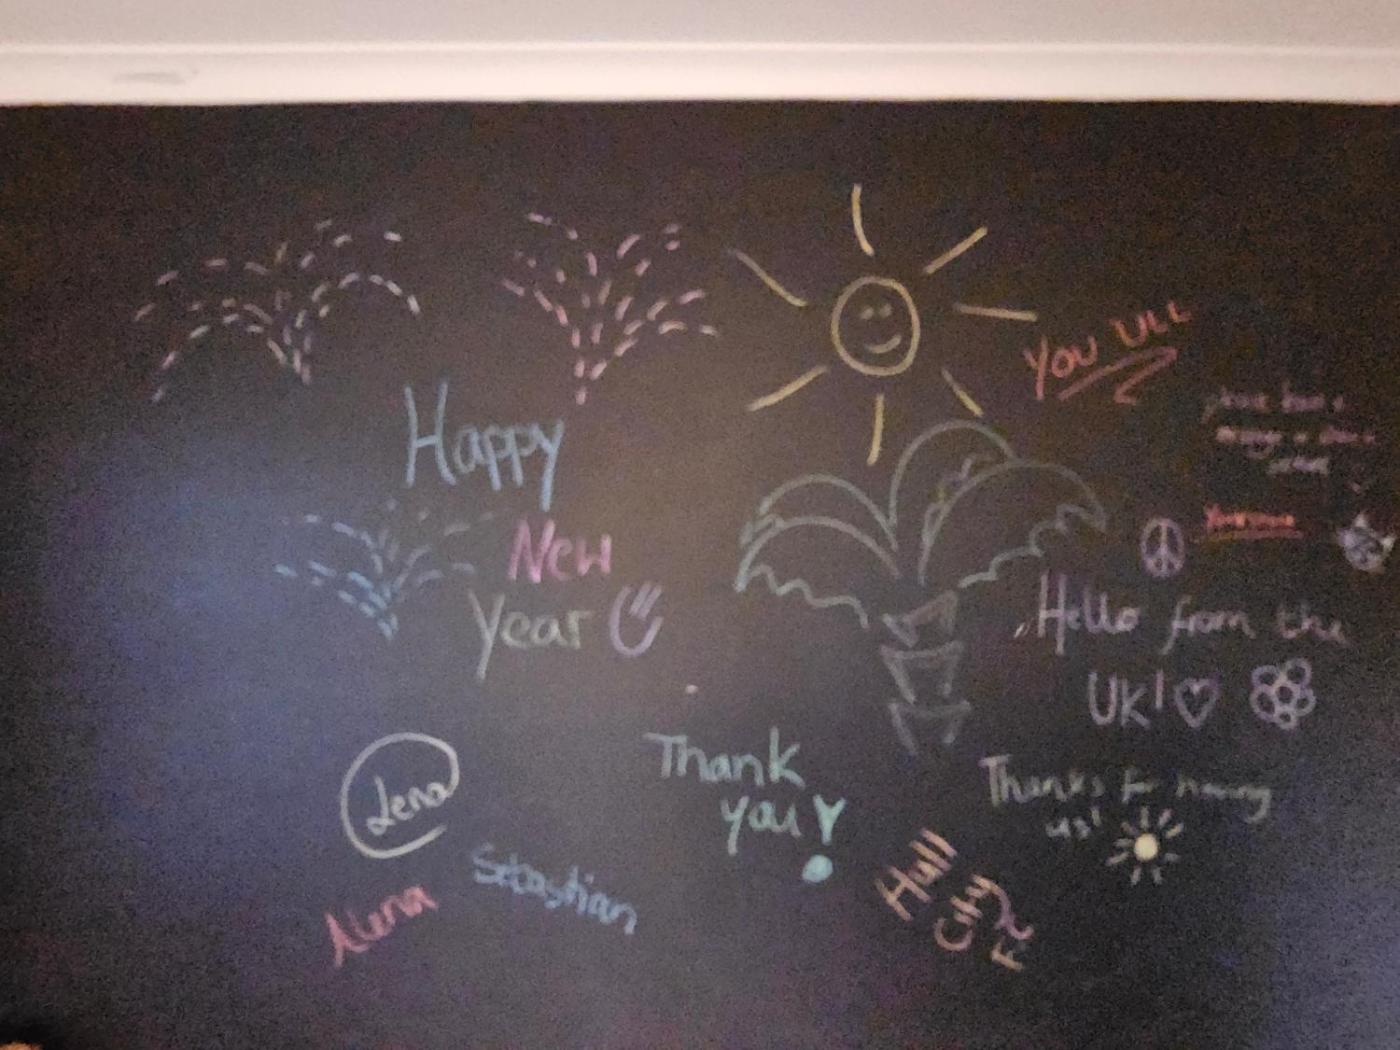 Happy
New
Year
You ULL
Hello from the
UK!
Thank
you!
Thanks for having
us!
Lena
Sebastian
Alena
Hull
City